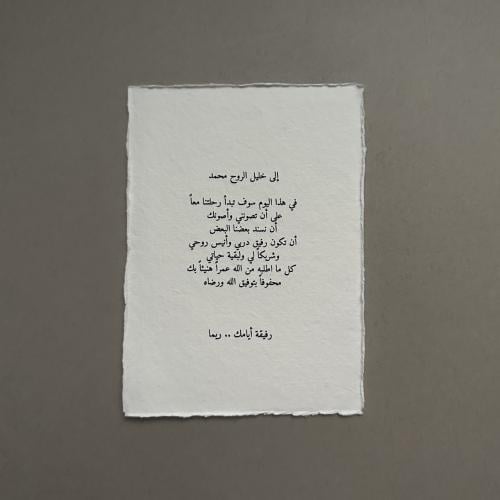 إلى خليل الروح محمد
في هذا اليوم سوف تبدأ رحلتنا معاً
على أن تصونني وأصونك
أن نسند بعضنا البعض
أن تكون رفيق دربي وأنيس روحي
وشريكاً لي ولبقية حياتي
كل ما اطلبه من الله عمراً هنيئاً بك
محفوفاً بتوفيق الله ورضاه
رفيقة أيامك .. ريما